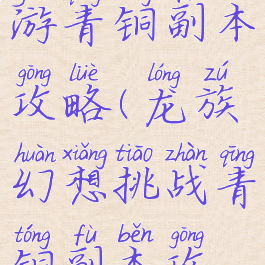 游青铜副本
gōng lüè lóng zú
攻略(龙族
huàn xiǎng tiāo zhàn qīng
幻想挑战青
tóng fù běn gōng
铜副本攻